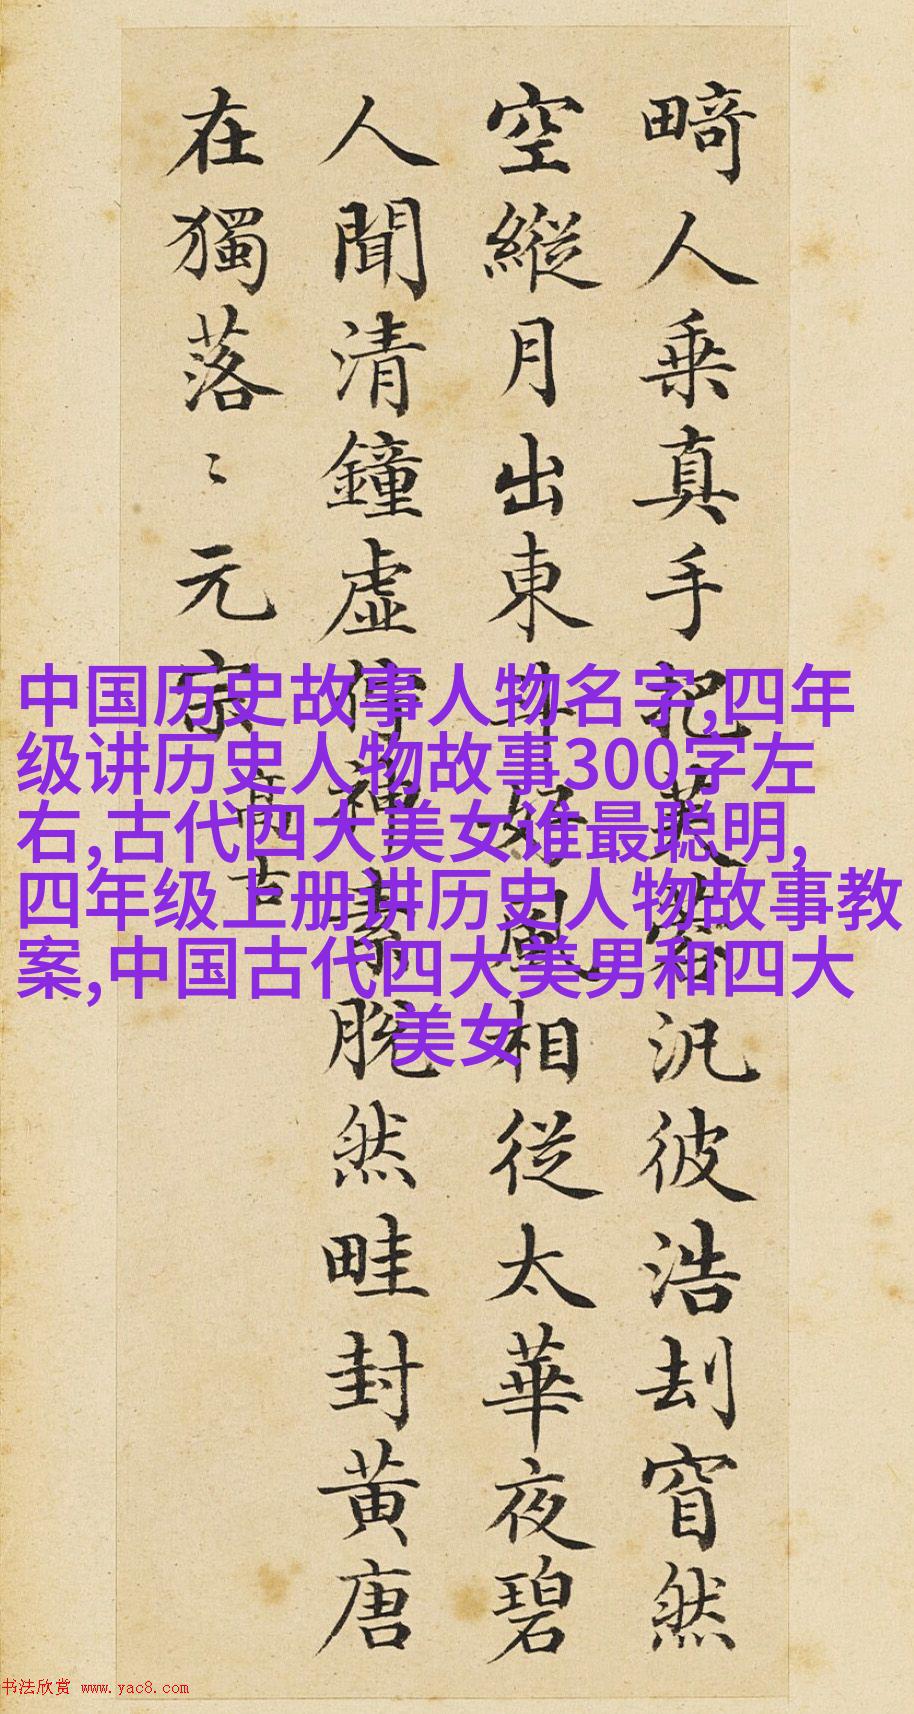 畸人乗真手把芙蓉汎彼浩刦窅然
空縱月出東斗好風相從太華夜碧
人聞清鐘虛佇神素脫然畦封黃唐
在獨落〻元宗
高古
中国历史故事人物名字,四年
级讲历史人物故事300字左
右,古代四大美女谁最聪明,
四年级上册讲历史人物故事教
案,中国古代四大美男和四大
美女
书法欣赏 www.yac8.com